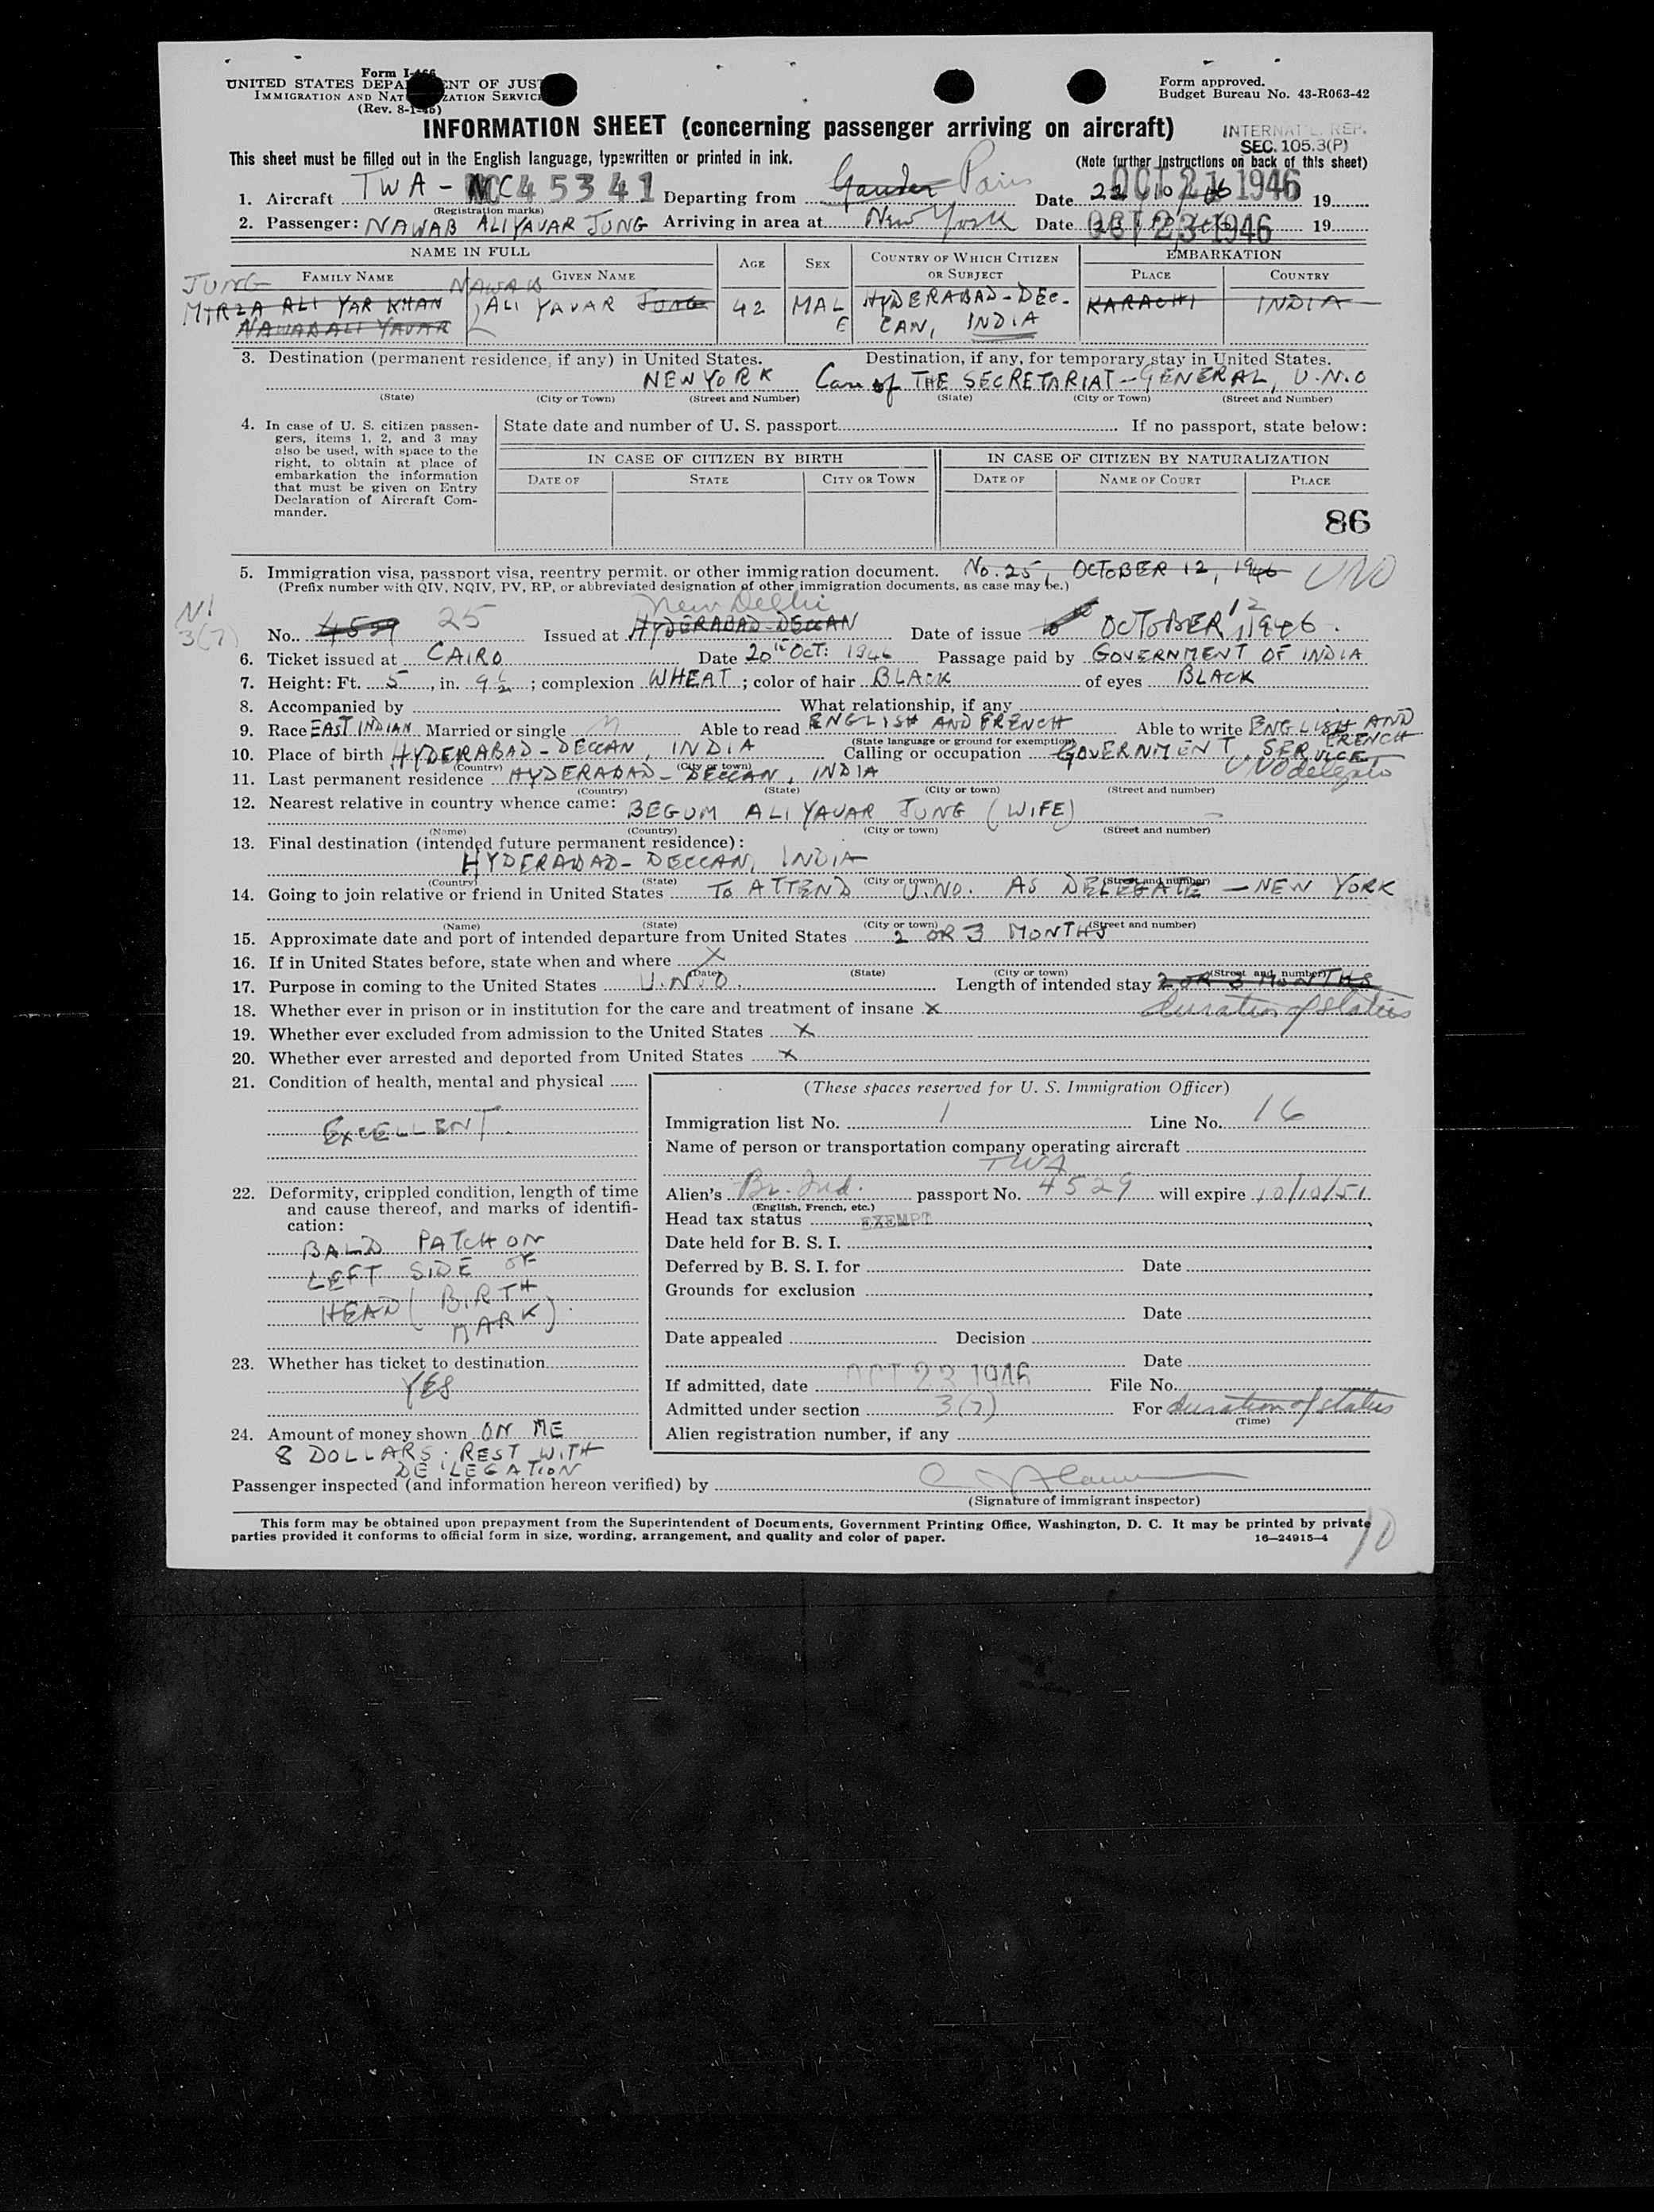 Form I-466
UNITED STATES DEPARTMENT OF JUSTICE
IMMIGRATION AND NATURALIZATION SERVICE
(Rev. 8-1-45)
Form approved.
Budget Bureau No. 43-R063-42
INFORMATION SHEET (concerning passenger arriving on aircraft)
INTERNAT'L. REP.
SEC. 105.3(P)
This sheet must be filled out in the English language, typewritten or printed in ink.
(Note further Instructions on back of this sheet)
1. Aircraft TWA - NC45341 Departing from Gander Paris Date 22/10/46 OCT 21 1946 19
(Registration marks)
2. Passenger: NAWAB ALI YAVAR JUNG Arriving in area at New York Date OCT 23 1946 19
NAME IN FULL
AGE SEX COUNTRY OF WHICH CITIZEN OR SUBJECT EMBARKATION
FAMILY NAME GIVEN NAME PLACE COUNTRY
JUNG NAWAB
MIRZA ALI YAR KHAN ALI YAVAR JUNG 42 MALE HYDERABAD-DECCAN, INDIA KARACHI INDIA
NAWAB ALI YAVAR
3. Destination (permanent residence, if any) in United States. Destination, if any, for temporary stay in United States.
NEW YORK Care of THE SECRETARIAT-GENERAL, U.N.O
(State) (City or Town) (Street and Number) (State) (City or Town) (Street and Number)
4. In case of U. S. citizen passengers, items 1, 2, and 3 may also be used, with space to the right, to obtain at place of embarkation the information that must be given on Entry Declaration of Aircraft Commander.
State date and number of U. S. passport If no passport, state below:
IN CASE OF CITIZEN BY BIRTH IN CASE OF CITIZEN BY NATURALIZATION
DATE OF STATE CITY OR TOWN DATE OF NAME OF COURT PLACE
86
5. Immigration visa, passport visa, reentry permit, or other immigration document. No. 25, OCTOBER 12, 1946 UNO
(Prefix number with QIV, NQIV, PV, RP, or abbreviated designation of other immigration documents, as case may be.)
3(7)
New Delhi
No. 4529 25 Issued at HYDERABAD-DECCAN Date of issue 10 OCTOBER 12, 1946.
6. Ticket issued at CAIRO Date 20th OCT: 1946 Passage paid by GOVERNMENT OF INDIA
7. Height: Ft. 5, in. 9½; complexion WHEAT; color of hair BLACK of eyes BLACK
8. Accompanied by What relationship, if any
9. Race EAST INDIAN Married or single M Able to read ENGLISH AND FRENCH Able to write ENGLISH AND FRENCH
(State language or ground for exemption)
10. Place of birth HYDERABAD-DECCAN, INDIA Calling or occupation GOVERNMENT SERVICE,
(Country) (City or town)
UNO delegate
11. Last permanent residence HYDERABAD-DECCAN, INDIA
(Country) (State) (City or town) (Street and number)
12. Nearest relative in country whence came: BEGUM ALI YAVAR JUNG (WIFE)
(Name) (Country) (City or town) (Street and number)
13. Final destination (intended future permanent residence):
HYDERABAD-DECCAN, INDIA
(Country) (State) (City or town) (Street and number)
14. Going to join relative or friend in United States TO ATTEND U.NO. AS DELEGATE — NEW YORK
(Name) (State) (City or town) (Street and number)
15. Approximate date and port of intended departure from United States 2 OR 3 MONTHS
16. If in United States before, state when and where X
(Date) (State) (City or town) (Street and number)
17. Purpose in coming to the United States U.N.O. Length of intended stay 2 OR 3 MONTHS
duration of status
18. Whether ever in prison or in institution for the care and treatment of insane X
19. Whether ever excluded from admission to the United States X
20. Whether ever arrested and deported from United States X
21. Condition of health, mental and physical
EXCELLENT.
22. Deformity, crippled condition, length of time and cause thereof, and marks of identification:
BALD PATCH ON
LEFT SIDE OF
HEAD (BIRTH
MARK).
23. Whether has ticket to destination
YES
24. Amount of money shown ON ME
8 DOLLARS: REST WITH
DELEGATION
(These spaces reserved for U. S. Immigration Officer)
Immigration list No. 1 Line No. 16
Name of person or transportation company operating aircraft
TWA
Alien's Br. Ind. passport No. 4529 will expire 10/10/51
(English, French, etc.)
Head tax status EXEMPT
Date held for B. S. I.
Deferred by B. S. I. for Date
Grounds for exclusion
Date
Date appealed Decision
Date
If admitted, date OCT 23 1946 File No.
Admitted under section 3(7) For duration of status
(Time)
Alien registration number, if any
Passenger inspected (and information hereon verified) by
(Signature of immigrant inspector)
This form may be obtained upon prepayment from the Superintendent of Documents, Government Printing Office, Washington, D. C. It may be printed by private
parties provided it conforms to official form in size, wording, arrangement, and quality and color of paper. 16—24915-4
10